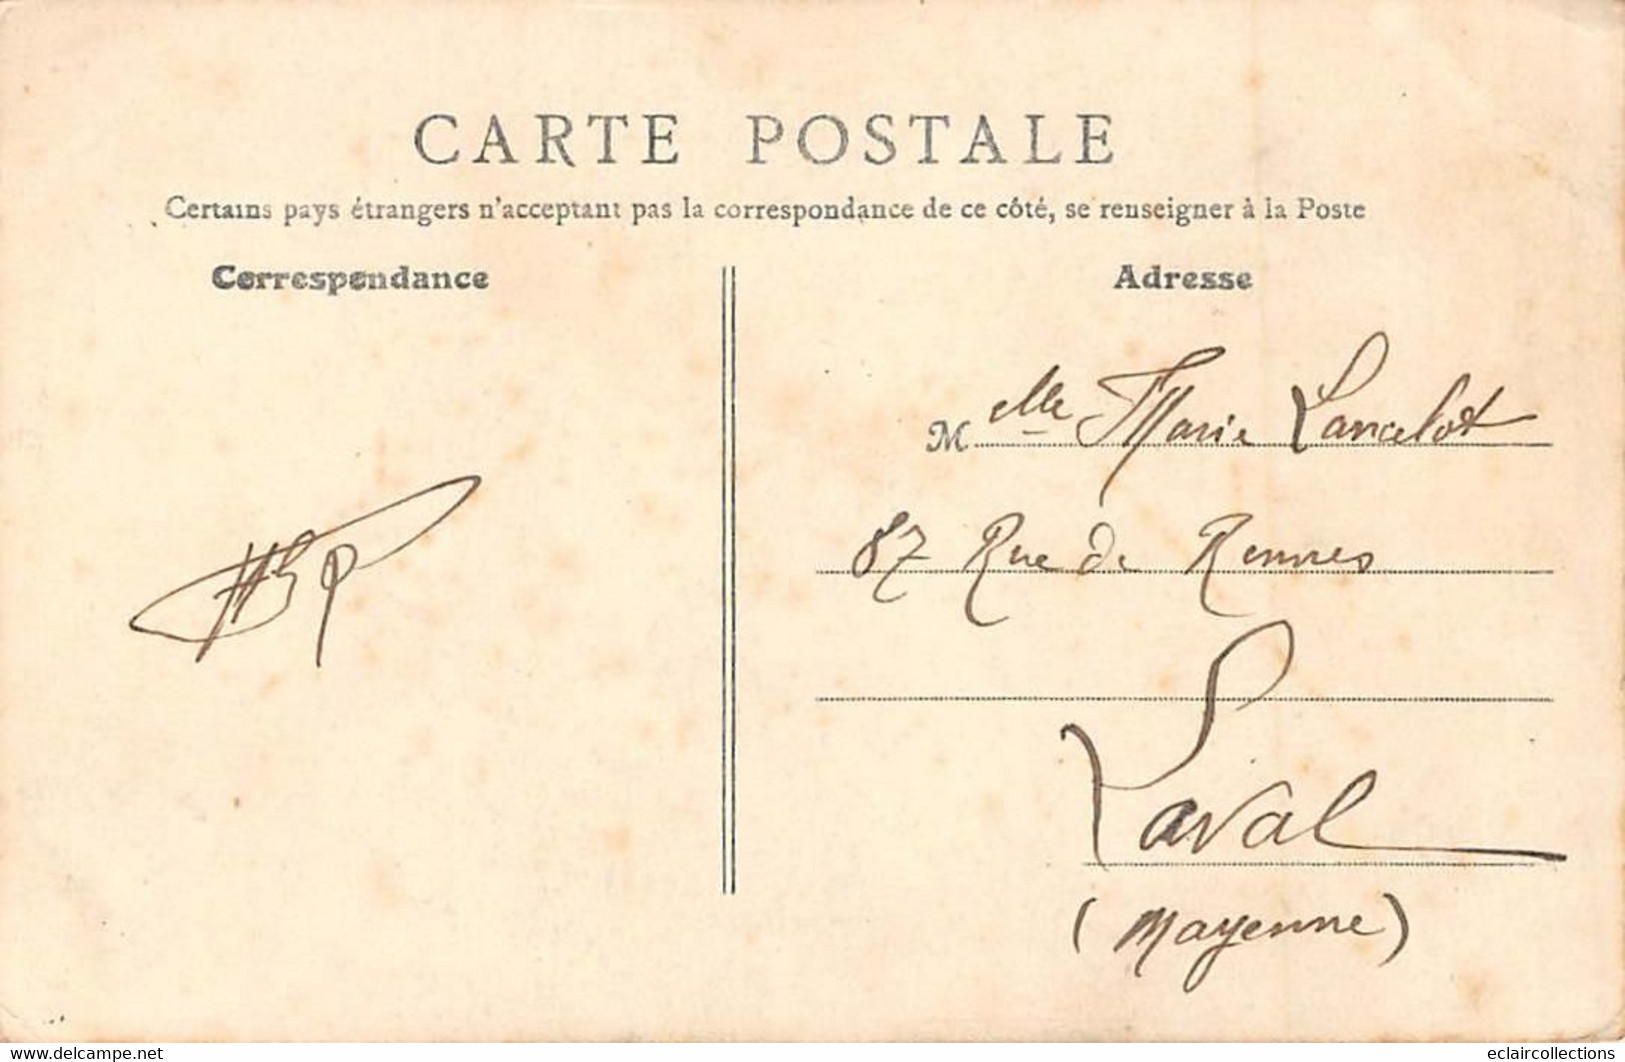 CARTE POSTALE
Certains pays étrangers n'acceptant pas la correspondance de ce côté, se renseigner à la Poste
Correspondance
Adresse
Mlle Marie Lancelot
87 Rue de Rennes
Laval
(Mayenne)
www.delcampe.net
eclaircollections